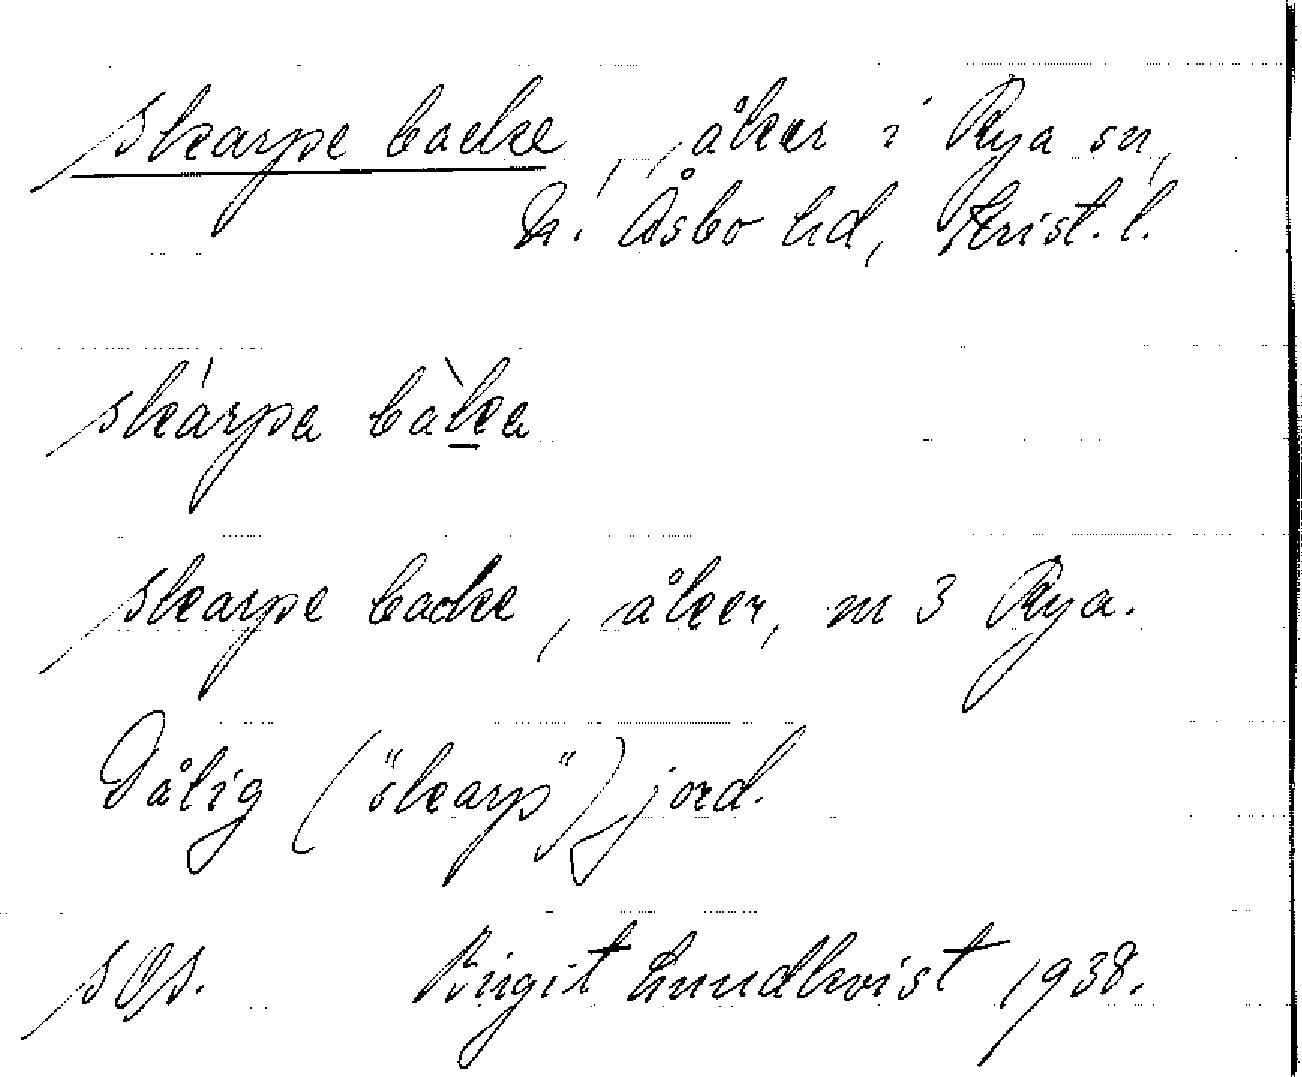 skarpe backe, åker i Rya sn,
N. Åsbo hd, Krist. l.
skárpa bàka
skarpe backe, åker, nr 3 Rya.
Dålig ("skarp") jord.
Birgit Lundkvist 1938.